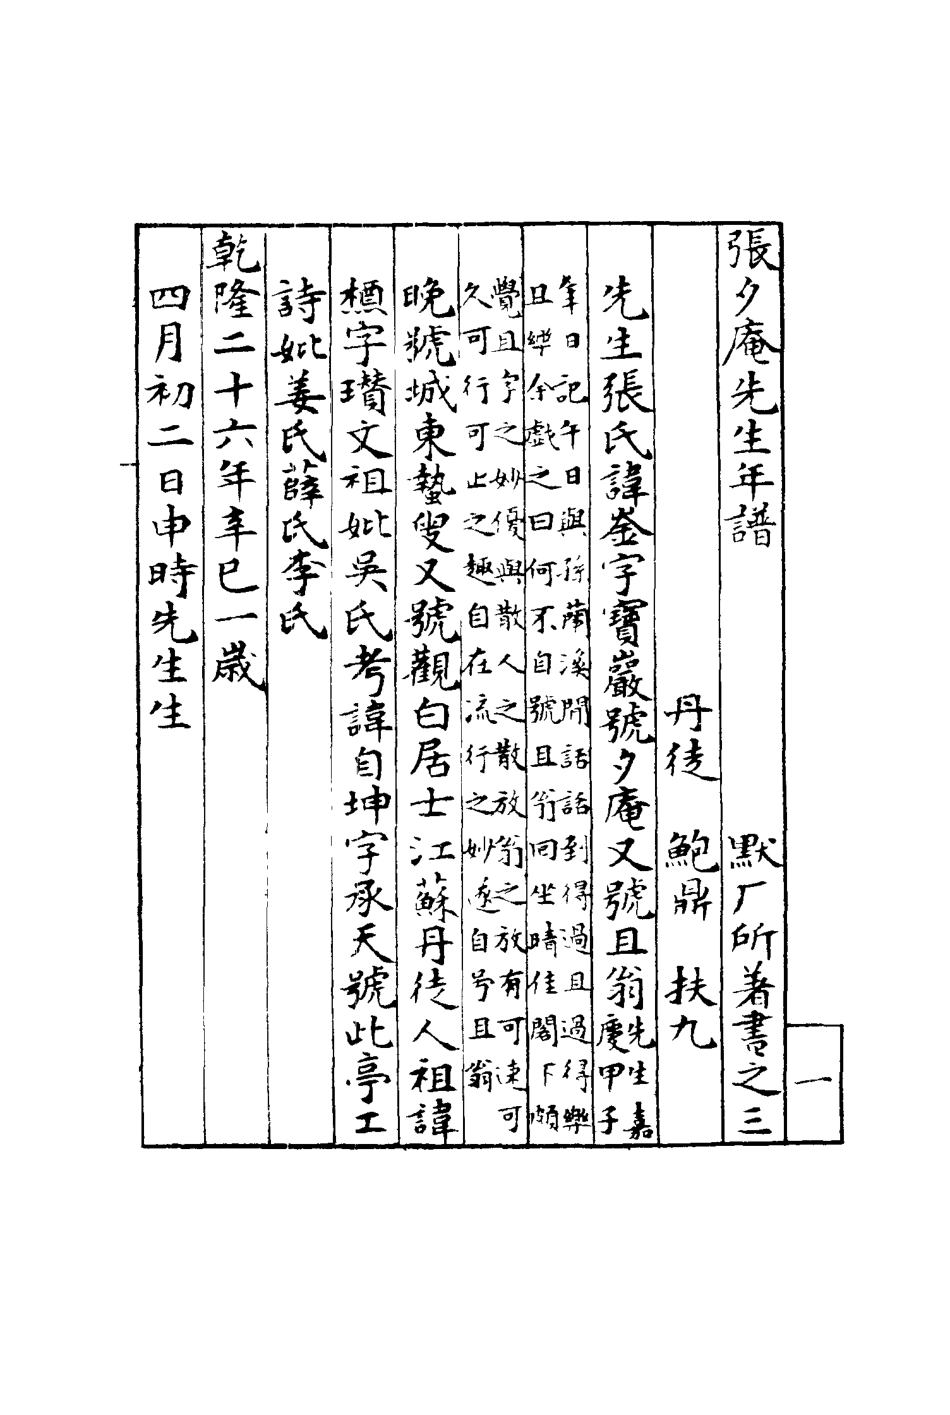 張夕庵先生年譜　默厂所著書之三
丹徒　鮑鼎　扶九
先生張氏諱崟字寶巖號夕庵又號且翁先生嘉慶甲子
年日記午日與孫蘭渙閒話話到得過且過得樂
且樂余戲之曰何不自號且翁回坐晴佳閣下頗
覺且字之妙優與散人之散放翁之放有可速可
久可行可止之趣自在流行之妙遂自号且翁
晚號城東蟄叟又號觀白居士江蘇丹徒人祖諱
櫝字瓚文祖妣吳氏考諱自坤字承天號此亭工
詩妣姜氏薛氏李氏
乾隆二十六年辛巳一歲
四月初二日申時先生生
一